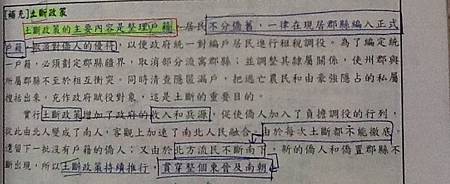 【補充】土斷政策
土斷政策的主要內容是整理戶籍，居民不分僑舊，一律在現居郡縣編入正式
戶籍，取消對僑人的優待，以便政府統一對編戶居民進行租稅調役。為了編定統
一戶籍，必須劃定郡縣疆界，取消部分流寓郡縣，並調整其隸屬關係，使州郡與
所屬郡縣不至於相互衝突。同時清查隱匿漏戶，把逃亡農民和由豪強隱占的私屬
搜括出來，充作政府賦役對象，這是土斷的重要目的。
實行土斷政策增加了政府的收入和兵源，促使僑人加入了負擔調役的行列，
從此由北人變成了南人，客觀上加速了南北人民融合。由於每次土斷都不能徹底，
遺留下一批沒有戶籍的僑人；又由於北方流民不斷南下，新的僑人和僑置郡縣不
斷出現，所以土斷政策持續推行，貫穿整個東晉及南朝。